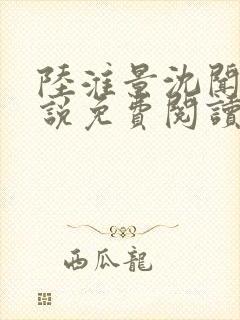 陸淮景沈聞
說免費閱讀
西瓜龍